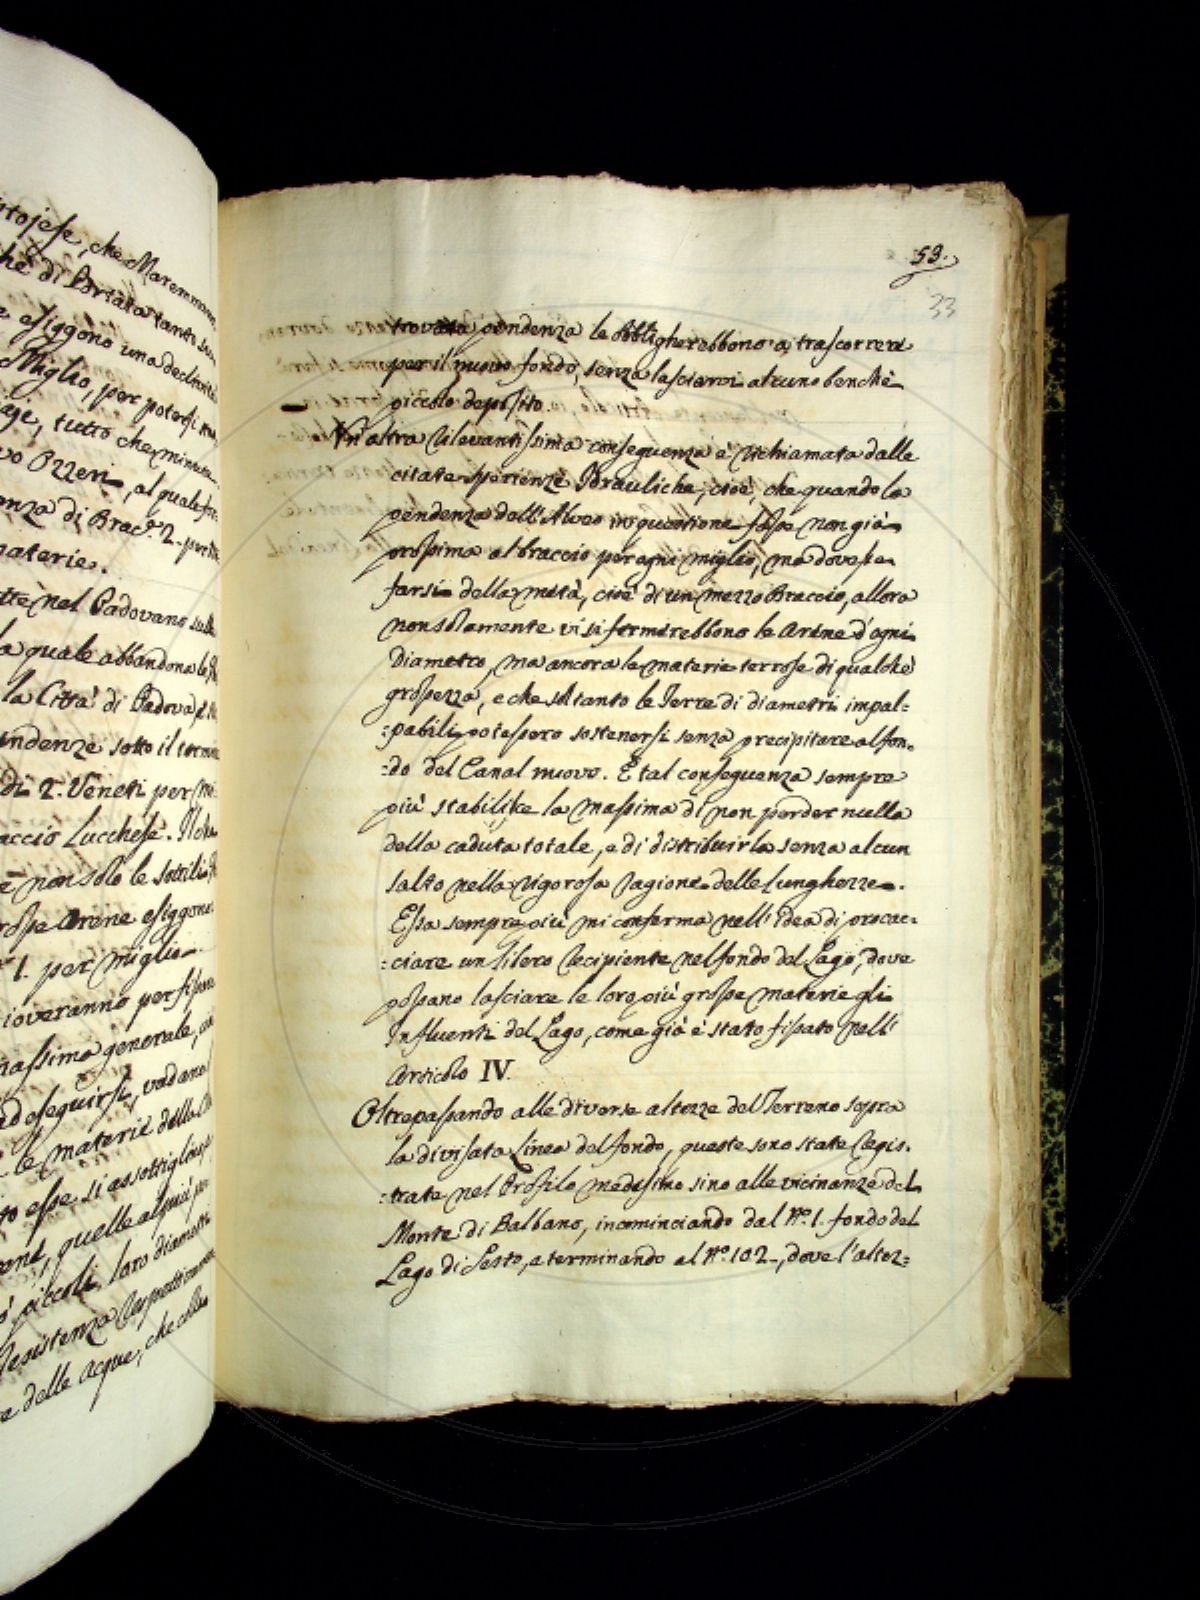 stojese, che Maremmane,
che di Portata tanto
esiggono una declività
Miglio, per potersi
tutto che minute
Ozzeri, al quale
di Brac.ª 2. per
materie.
nel Padovano sulla
la quale abbandona le
la Città di Padova,
sotto il termine
di 2. Veneti per mi-
Lucchese. Il che
non solo le sottili,
Arene esiggono
1. per miglio.
gioveranno per fissare
massima generale,
ad eseguirsi, vadano
le materie dello
esse si assottigliano
quelle al più
piccoli loro diametri
Resistenza
delle Acque, che
53.
33
trovata pendenza le obbligherebbono a trascorrere
per il nuovo fondo, senza lasciarvi alcuno benchè
piccolo deposito.
Un altra rilevantissima conseguenza è richiamata dalle
citate sperienze Idrauliche, cioè, che quando la
pendenza dell'Alveo in questione fosse non già
prossima al braccio per ogni miglio, ma dovesse
farsi della metà, cioè di un mezzo Braccio, allora
non solamente vi si fermerebbono le Arene d'ogni
Diametro, ma ancora le materie terrose di qualchè
grossezza, e che soltanto le Terre di diametri impal=
=pabili potessero sostenersi senza precipitare al fon=
=do del Canal nuovo. E tal conseguenza sempre
più stabilisce la massima di non perder nulla
della caduta totale, e di distribuirla senza alcun
salto nella rigorosa ragione delle lunghezze.
Essa sempre più mi conferma nell'idea di procac=
=ciare un libero recipiente nel fondo del Lago, dove
possano lasciare le loro più grosse materie gli
Influenti del Lago, come già è stato fissato nell'
Articolo IV.
Oltrepassando alle diverse altezze del Terreno sopra
la divisata Linea del fondo, queste sono state regis=
=trate nel Profilo medesimo sino alle vicinanze del
Monte di Balbano, incominciando dal Nº. 1. fondo del
Lago di Sesto, e terminando al Nº. 102., dove l'altez=